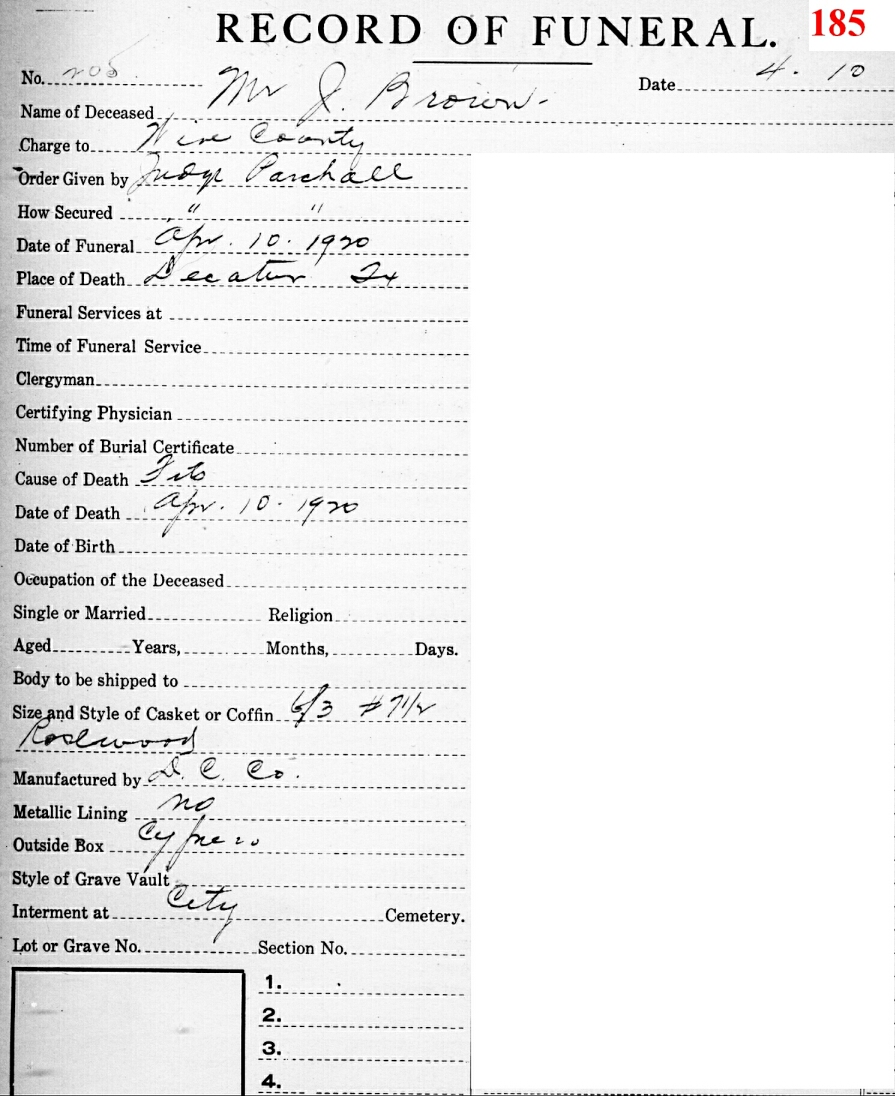 RECORD OF FUNERAL. 185
No. 205 Date 4. 10
Name of Deceased Mr J. Brown.
Charge to Wise County
Order Given by Judge Parchall
How Secured " "
Date of Funeral Apr. 10. 1920
Place of Death Decatur Tx
Funeral Services at
Time of Funeral Service
Clergyman
Certifying Physician
Number of Burial Certificate
Cause of Death Fits
Date of Death Apr. 10. 1920
Date of Birth
Occupation of the Deceased
Single or Married Religion
Aged Years, Months, Days.
Body to be shipped to
Size and Style of Casket or Coffin 6/3 #71/2
Rosewood
Manufactured by D. C. Co.
Metallic Lining no
Outside Box Cypress
Style of Grave Vault
Interment at City Cemetery.
Lot or Grave No. Section No.
1.
2.
3.
4.